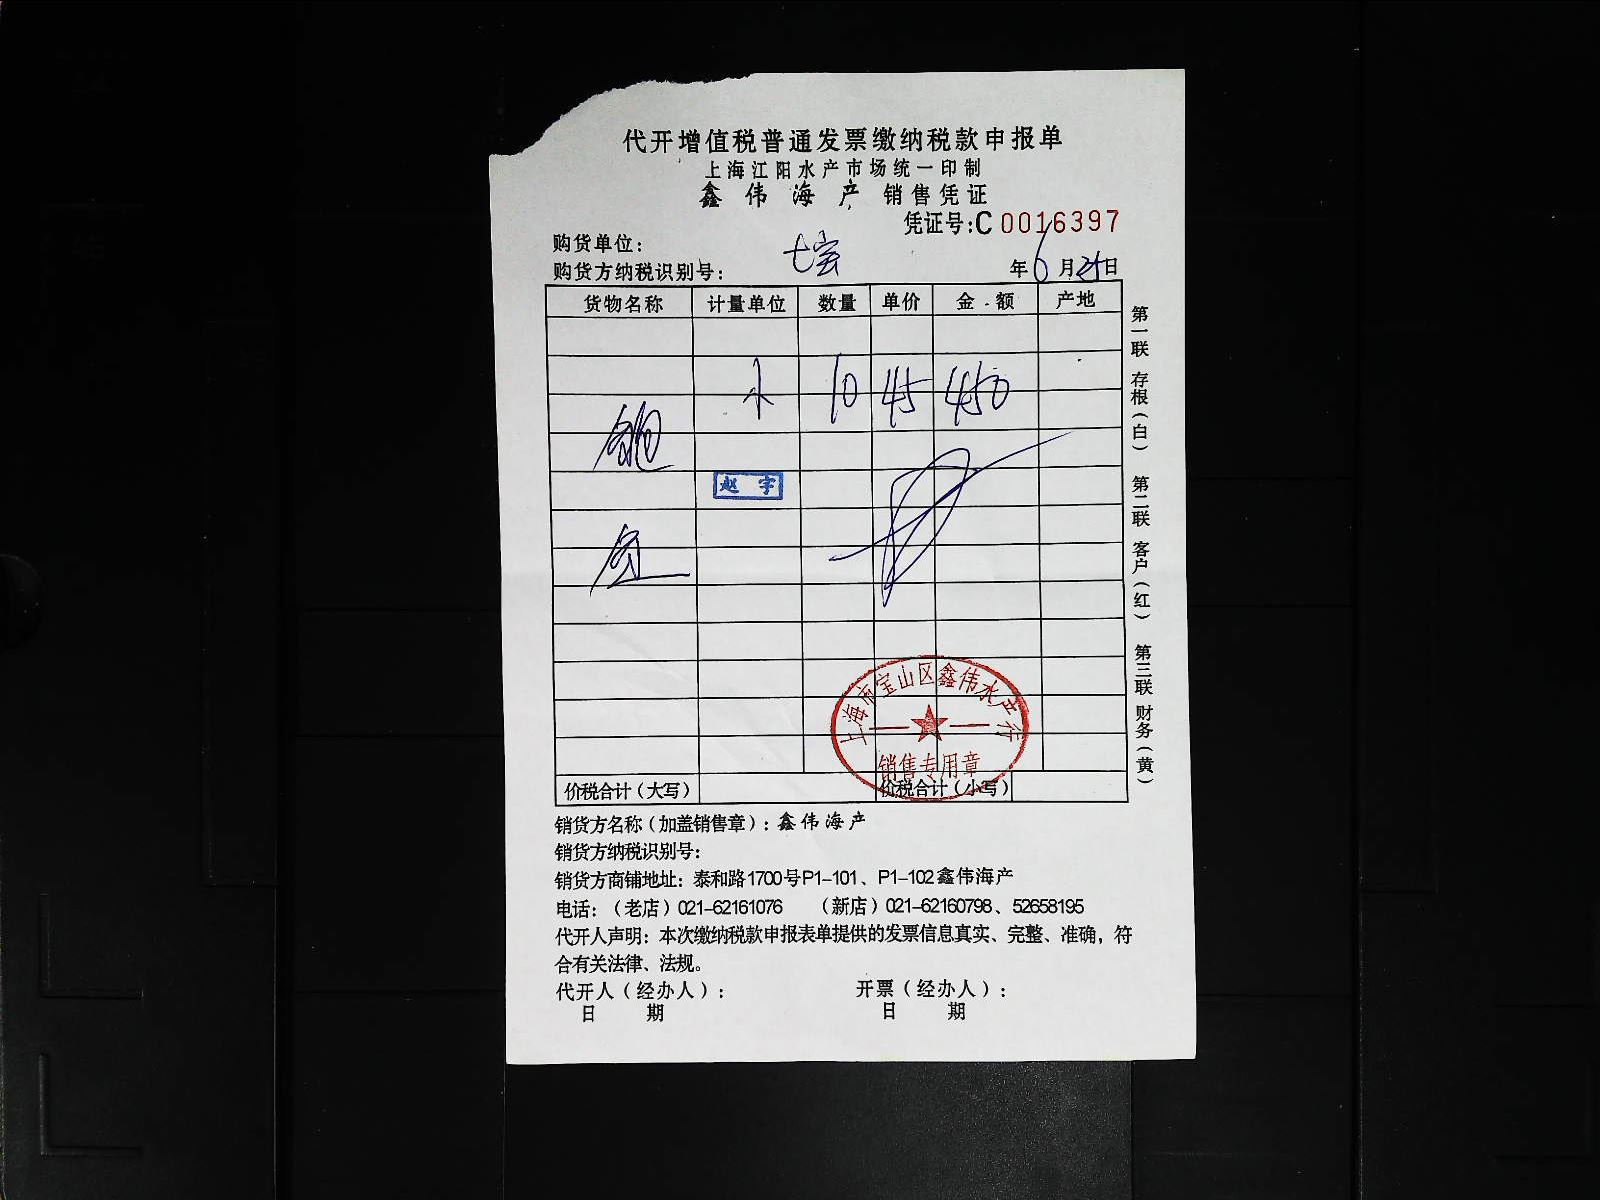 代开增值税普通发票缴纳税款申报单
上海江阳水产市场统一印制
鑫伟海产 销售凭证
凭证号:C 0016397
购货单位:
七宝
购货方纳税识别号: 年6月25日
货物名称 计量单位 数量 单价 金额 产地
10 45 450
赵宇
上海市宝山区鑫伟水产行
销售专用章
价税合计(大写) 价税合计(小写)
第一联 存根(白) 第二联 客户(红) 第三联 财务(黄)
销货方名称(加盖销售章):鑫伟海产
销货方纳税识别号:
销货方商铺地址:泰和路1700号P1-101、P1-102鑫伟海产
电话:(老店)021-62161076 (新店)021-62160798、52658195
代开人声明:本次缴纳税款申报表单提供的发票信息真实、完整、准确,符
合有关法律、法规。
代开人(经办人): 开票(经办人):
日 期 日 期